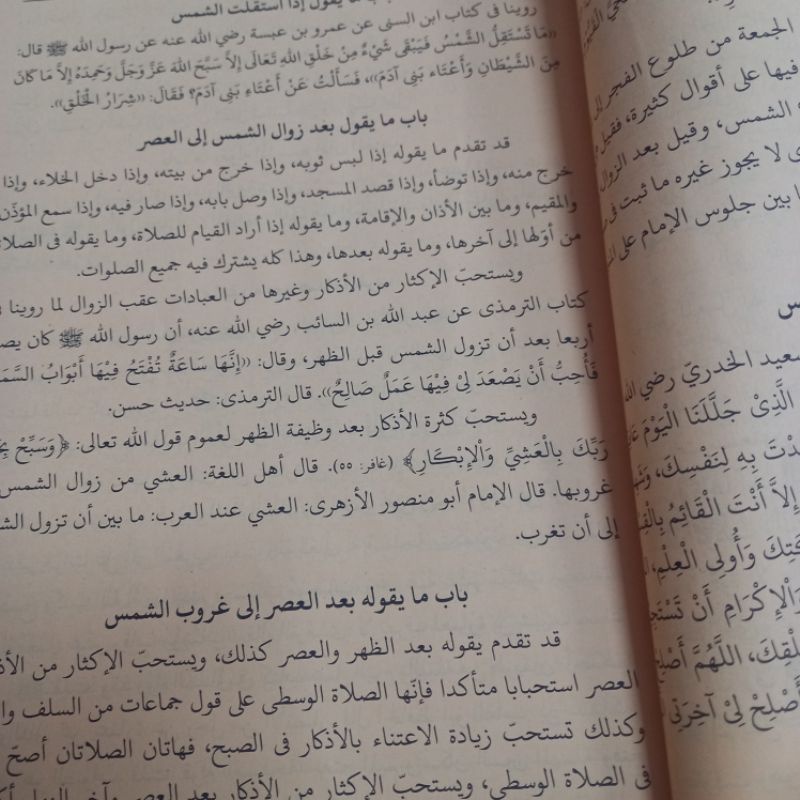 باب ما يقول إذا استقلت الشمس
روينا فى كتاب ابن السنى عن عمرو بن عبسة رضي الله عنه عن رسول الله ﷺ قال:
«مَا تَسْتَقِلُّ الشَّمْسُ فَيَبْقَى شَيْءٌ مِنْ خَلْقِ اللهِ تَعَالَى إِلاَّ سَبَّحَ اللهَ عَزَّ وَجَلَّ وَحَمِدَهُ إِلاَّ مَا كَانَ
مِنَ الشَّيْطَانِ وَأَعْتَاء بَنِى آدَمَ»، فَسَأَلْتُ عَنْ أَعْتَاءِ بَنِى آدَمَ؟ فَقَالَ: «شِرَارُ الْخَلْقِ».
باب ما يقول بعد زوال الشمس إلى العصر
قد تقدم ما يقوله إذا لبس ثوبه، وإذا خرج من بيته، وإذا دخل الخلاء، وإذا
خرج منه، وإذا توضأ، وإذا قصد المسجد، وإذا وصل بابه، وإذا صار فيه، وإذا سمع المؤذّن
والمقيم، وما بين الأذان والإقامة، وما يقوله إذا أراد القيام للصلاة، وما يقوله فى الصلا
من أوّلها إلى آخرها، وما يقوله بعدها، وهذا كله يشترك فيه جميع الصلوات.
ويستحبّ الإكثار من الأذكار وغيرها من العبادات عقب الزوال لما روينا
كتاب الترمذى عن عبد الله بن السائب رضي الله عنه، أن رسول الله ﷺ كان يص
أربعا بعد أن تزول الشمس قبل الظهر، وقال: «إِنَّهَا سَاعَةٌ تُفْتَحُ فِيْهَا أَبْوَابُ السَّمَ
فَأُحِبُّ أَنْ يَصْعَدَ لِىْ فِيْهَا عَمَلٌ صَالِحٌ». قال الترمذى: حديث حسن.
ويستحبّ كثرة الأذكار بعد وظيفة الظهر لعموم قول الله تعالى: ﴿وَسَبِّحْ بِحَ
رَبِّكَ بِالْعَشِيِّ وَالْإِبْكَارِ﴾ (غافر: ٥٥). قال أهل اللغة: العشي من زوال الشمس
غروبها. قال الإمام أبو منصور الأزهرى: العشي عند العرب: ما بين أن تزول الش
إلى أن تغرب.
باب ما يقوله بعد العصر إلى غروب الشمس
قد تقدم يقوله بعد الظهر والعصر كذلك، ويستحبّ الإكثار من الأذ
العصر استحبابا متأكدا فإنّها الصلاة الوسطى على قول جماعات من السلف وا
وكذلك تستحبّ زيادة الاعتناء بالأذكار فى الصبح، فهاتان الصلاتان أصحّ
فى الصلاة الوسطى، ويستحبّ الإكثار من الأذكار بعد العصر وآخر النهار
الجمعة من طلوع الفجر إلى
فيها على أقوال كثيرة، فقيل
الشمس، وقيل بعد الزوال
لا يجوز غيره ما ثبت فى
بين جلوس الإمام على
سعيد الخدريّ رضي الله
الَّذِىْ جَلَّلَنَا الْيَوْمَ
بِهِ لِنَفْسِكَ،
إِلاَّ أَنْتَ الْقَائِمُ
وَأُولِى الْعِلْمِ،
وَالْإِكْرَامِ أَنْ
اللَّهُمَّ
أَصْلِحْ لِىْ آخِرَتِى